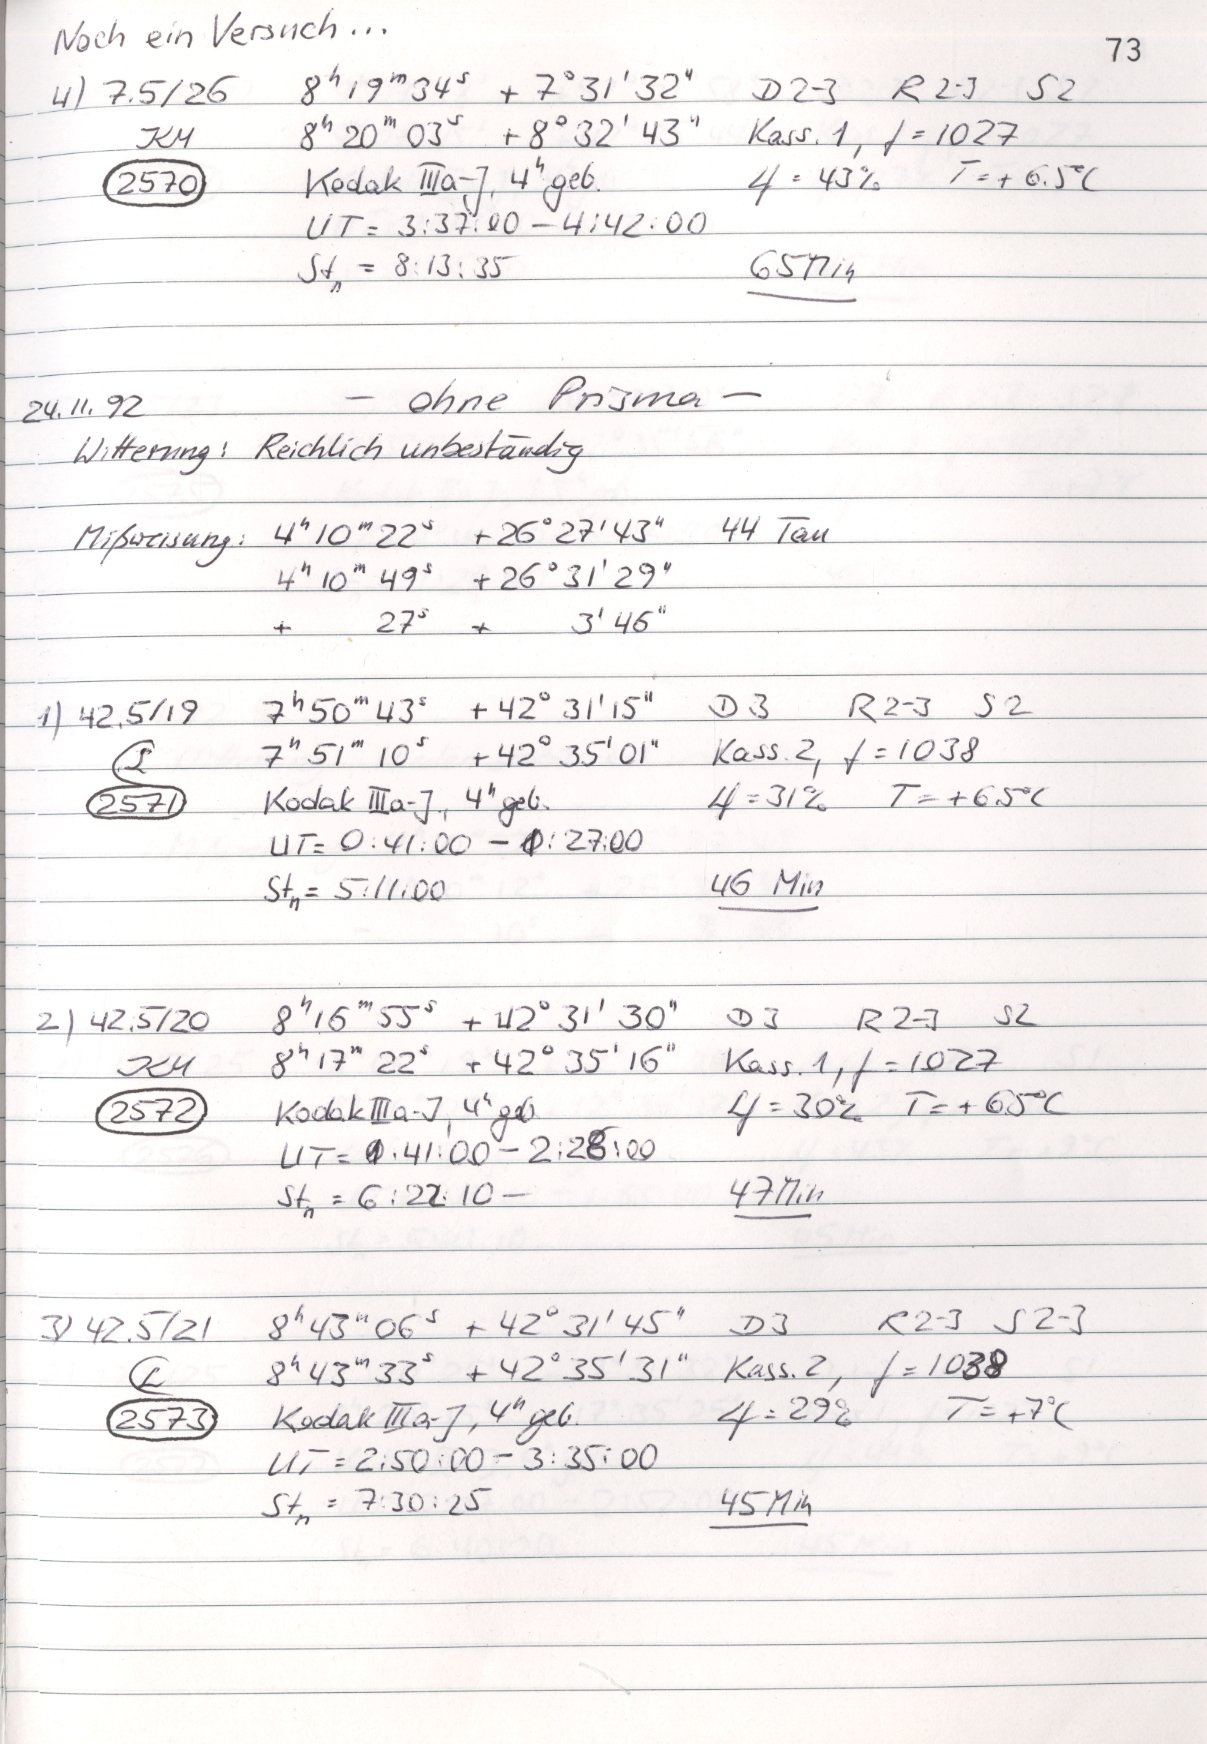 Noch ein Versuch...
73
4) 7.5/26 8h 19m 34s + 7° 31' 32" D 2-3 R 2-3 S 2
KM 8h 20m 03s + 8° 32' 43" Kass. 1, f = 1027
2570 Kodak IIIa-J, 4h geb. φ = 43% T = + 6.5°C
UT = 3:37:00 – 4:42:00
Stn = 8:13:35 65 Min
24.11.92 – ohne Prisma –
Witterung: Reichlich unbeständig
Mißweisung: 4h 10m 22s + 26° 27' 43" 44 Tau
4h 10m 49s + 26° 31' 29"
+ 27s + 3' 46"
1) 42.5/19 7h 50m 43s + 42° 31' 15" D 3 R 2-3 S 2
7h 51m 10s + 42° 35' 01" Kass. 2, f = 1038
2571 Kodak IIIa-J, 4h geb. φ = 31% T = + 6.5°C
UT = 0:41:00 – 1:27:00
Stn = 5:11:00 46 Min
2) 42.5/20 8h 16m 55s + 42° 31' 30" D 3 R 2-3 S 2
KM 8h 17m 22s + 42° 35' 16" Kass. 1, f = 1027
2572 Kodak IIIa-J, 4h geb φ = 30% T = + 6.5°C
UT = 1:41:00 – 2:28:00
Stn = 6:22:10 – 47 Min
3) 42.5/21 8h 43m 06s + 42° 31' 45" D 3 R 2-3 S 2-3
8h 43m 33s + 42° 35' 31" Kass. 2, f = 1038
2573 Kodak IIIa-J, 4h geb. φ = 29% T = + 7°C
UT = 2:50:00 – 3:35:00
Stn = 7:30:25 45 Min